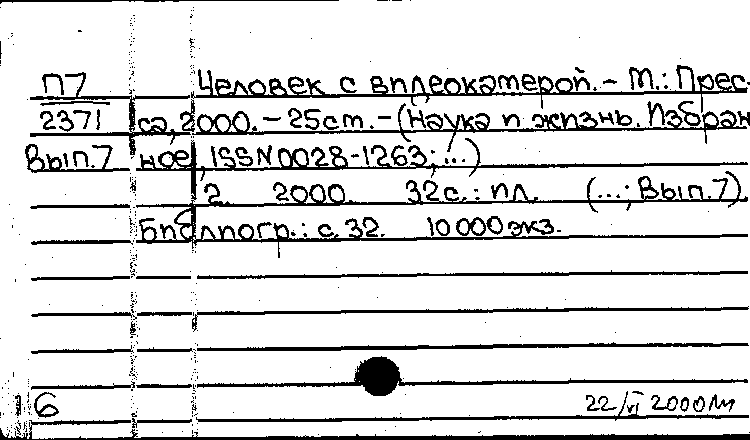 П7 Человек с видеокамерой. - М.: Прес-
2371 са, 2000. - 25 см. - (Наука и жизнь. Избран
Вып.7 ное, ISSN 0028-1263; ...)
2. 2000. 32 с.: ил. (...; Вып. 7).
Библиогр.: с. 32. 10 000 экз.
6 22/VI 2000